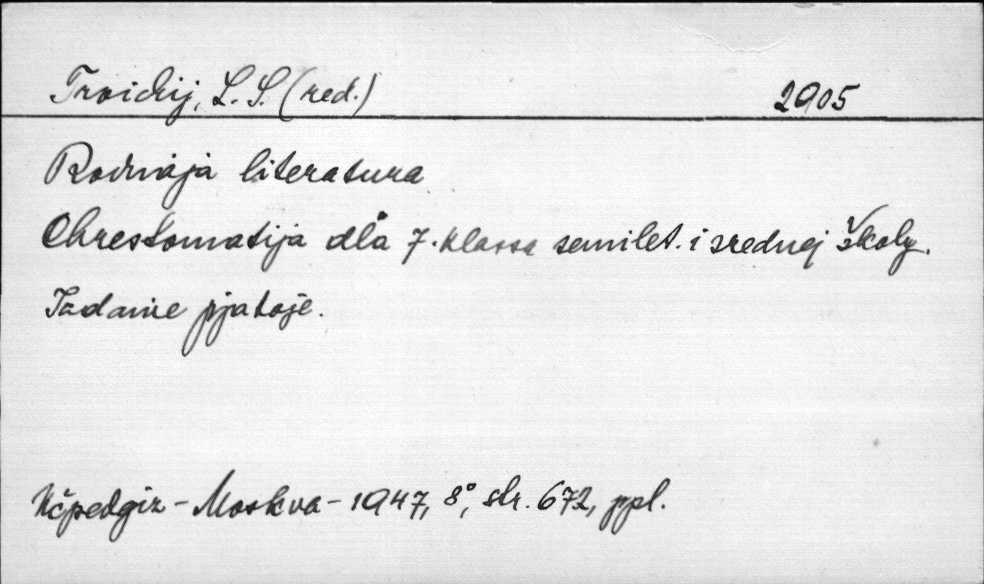 Troickij, L. S. (red.) 2905
Rodnaja literatura
Chrestomatija dl'a 7. klassa semilet. i srednej školy.
Izdanie pjatoje.
Učpedgiz - Moskva - 1947, 8°, str. 672, ppl.